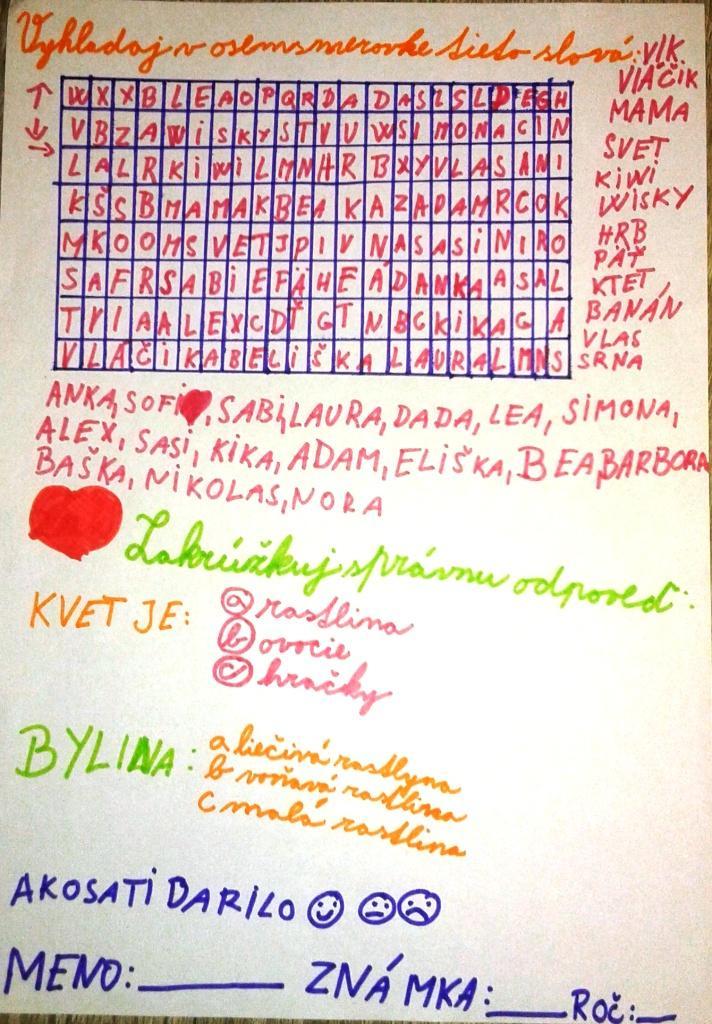 Vyhladaj v osemsmerovke tieto slová:
VLK
VLÁČIK
MAMA
SVET
KIWI
WISKY
HRB
PÄŤ
KTET
BANÁN
VLAS
SRNA
↑
↓
→
W X X B L E A O P Q R D A D A S L S L D E G H
V B Z A W i S K Y S T V U W S I M O N A C I N
L A L R K i W i L M N H R B X Y V L A S A N I
K Š S B M A M A K B E A K A Z A D A M R C O K
M K O O H S V E T J P I V N A S A S i N I R O
S A F R S A B I E F Ä H E Á D A N K A A S A L
T V I A A L E X C D Ť G T N B C K i K A G A
V L Á Č i K A B E L i Š K A L A U R A L M N S
ANKA, SOFI, SABI, LAURA, DADA, LEA, SIMONA,
ALEX, SASI, KIKA, ADAM, ELIŠKA, BEA, BARBORA
BAŠKA, NIKOLAS, NORA
Zakrúžkuj správnu odpoveď:
KVET JE: a rastlina
b ovocie
c hračky
BYLINA: a liečivá rastlyna
b voňavá rastlina
c malá rastlina
AKOSATI DARILO
MENO:______ ZNÁMKA:____ Roč:__